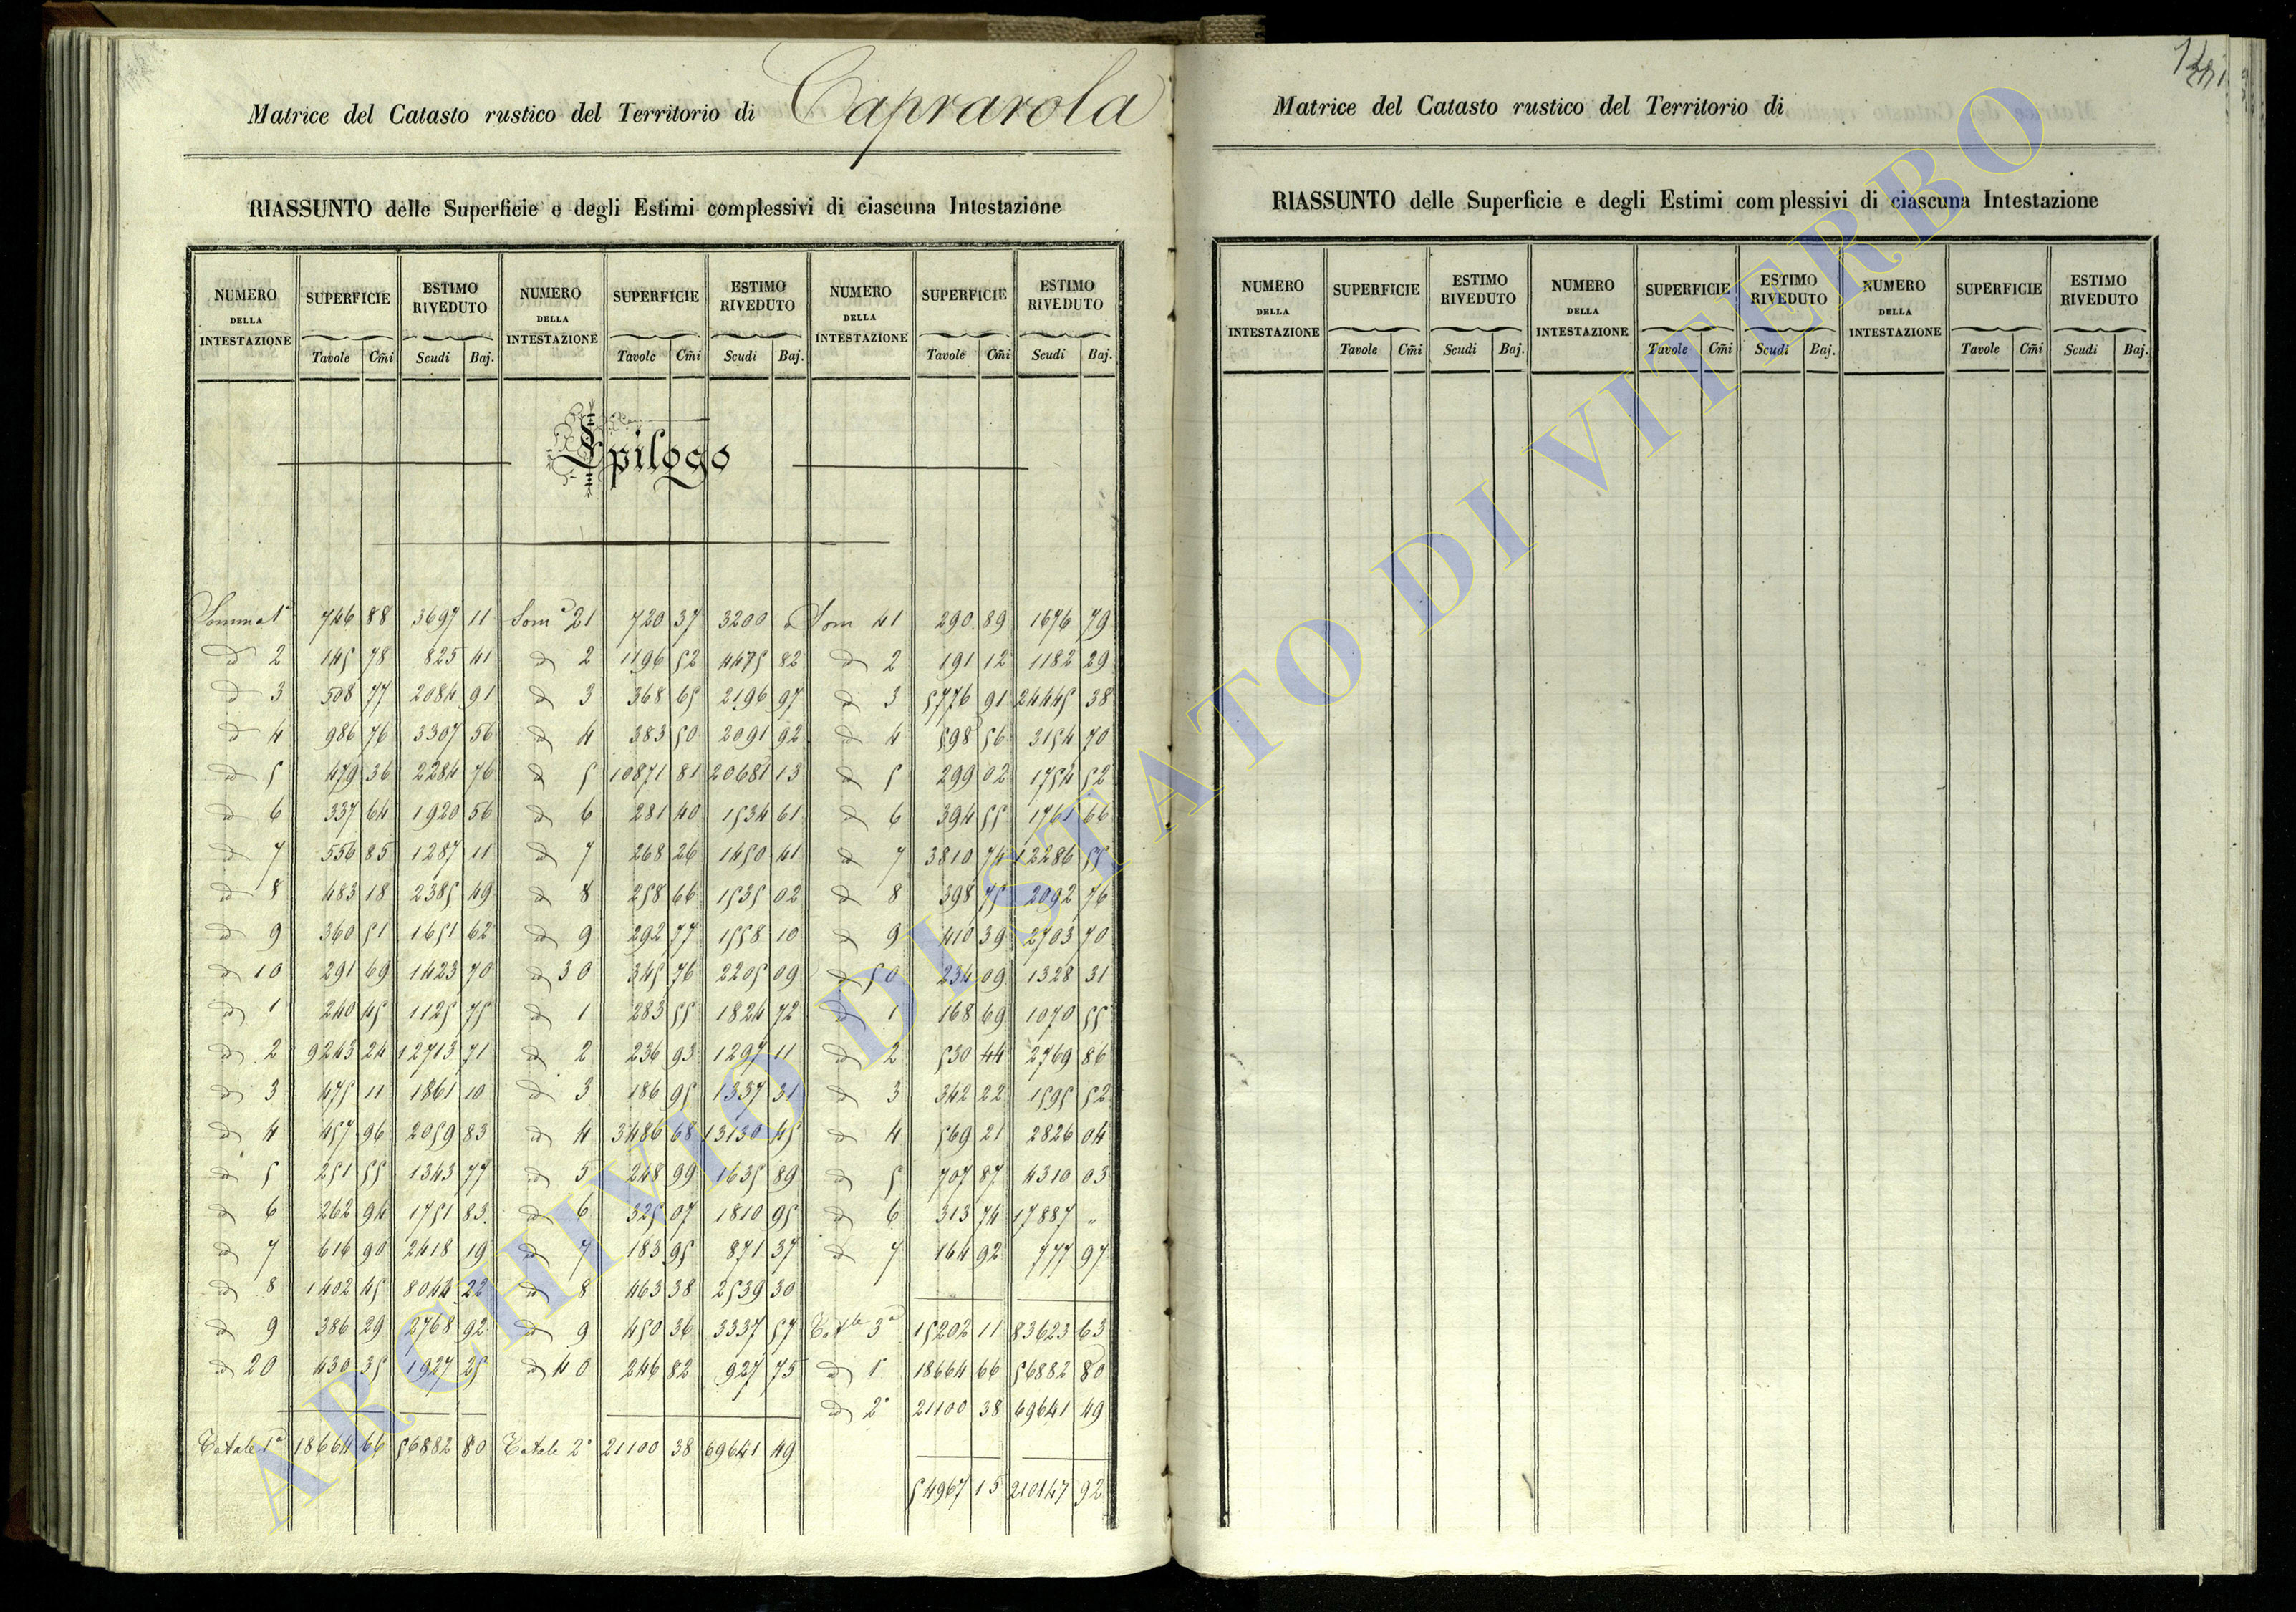 Matrice del Catasto rustico del Territorio di Caprarola
RIASSUNTO delle Superficie e degli Estimi complessivi di ciascuna Intestazione
NUMERO DELLA INTESTAZIONE SUPERFICIE ESTIMO RIVEDUTO NUMERO DELLA INTESTAZIONE SUPERFICIE ESTIMO RIVEDUTO NUMERO DELLA INTESTAZIONE SUPERFICIE ESTIMO RIVEDUTO
Tavole Cm̃i Scudi Baj. Tavole Cm̃i Scudi Baj. Tavole Cm̃i Scudi Baj.
Epilogo
Somma 1ª 746 88 3697 11 Somª 21 720 37 3200 " Som 41 290 89 1676 79
d 2 145 78 825 41 d 2 1196 52 4475 82 d 2 191 12 1182 29
d 3 508 77 2084 91 d 3 368 65 2196 97 d 3 5776 91 24445 38
d 4 986 76 3307 56 d 4 383 50 2091 92 d 4 598 56 3154 70
d 5 479 36 2284 76 d 5 10871 81 20681 13 d 5 299 02 1754 52
d 6 337 64 1920 56 d 6 281 40 1534 61 d 6 394 55 1761 66
d 7 556 85 1287 11 d 7 268 26 1450 41 d 7 3810 74 12286 55
d 8 483 18 2385 49 d 8 258 66 1535 02 d 8 398 75 2092 76
d 9 360 51 1651 62 d 9 292 77 1558 10 d 9 410 39 2703 70
d 10 291 69 1423 70 d 30 345 76 2205 09 d 50 234 09 1328 31
d 1 240 45 1125 75 d 1 283 55 1824 72 d 1 168 69 1070 55
d 2 9243 24 12713 71 d 2 236 93 1297 11 d 2 530 44 2769 86
d 3 475 11 1861 10 d 3 186 95 1337 31 d 3 342 22 1595 52
d 4 457 96 2059 83 d 4 3486 68 13130 45 d 4 569 21 2826 04
d 5 251 55 1343 77 d 5 248 99 1635 89 d 5 707 87 4310 03
d 6 262 94 1751 83 d 6 325 07 1810 95 d 6 313 74 17887 "
d 7 616 90 2418 19 d 7 183 95 871 37 d 7 164 92 777 97
d 8 1402 45 8044 22 d 8 463 38 2539 30
d 9 386 29 2768 92 d 9 450 36 3337 57 Totle 3ª 15202 11 83623 63
d 20 430 35 1927 25 d 40 246 82 927 75 d 1ª 18664 66 56882 80
d 2ª 21100 38 69641 49
Totale 1ª 18664 66 56882 80 Totale 2ª 21100 38 69641 49
54967 15 210147 92
Matrice del Catasto rustico del Territorio di
RIASSUNTO delle Superficie e degli Estimi complessivi di ciascuna Intestazione
NUMERO DELLA INTESTAZIONE SUPERFICIE ESTIMO RIVEDUTO NUMERO DELLA INTESTAZIONE SUPERFICIE ESTIMO RIVEDUTO NUMERO DELLA INTESTAZIONE SUPERFICIE ESTIMO RIVEDUTO
Tavole Cm̃i Scudi Baj. Tavole Cm̃i Scudi Baj. Tavole Cm̃i Scudi Baj.
ARCHIVIO DI STATO DI VITERBO